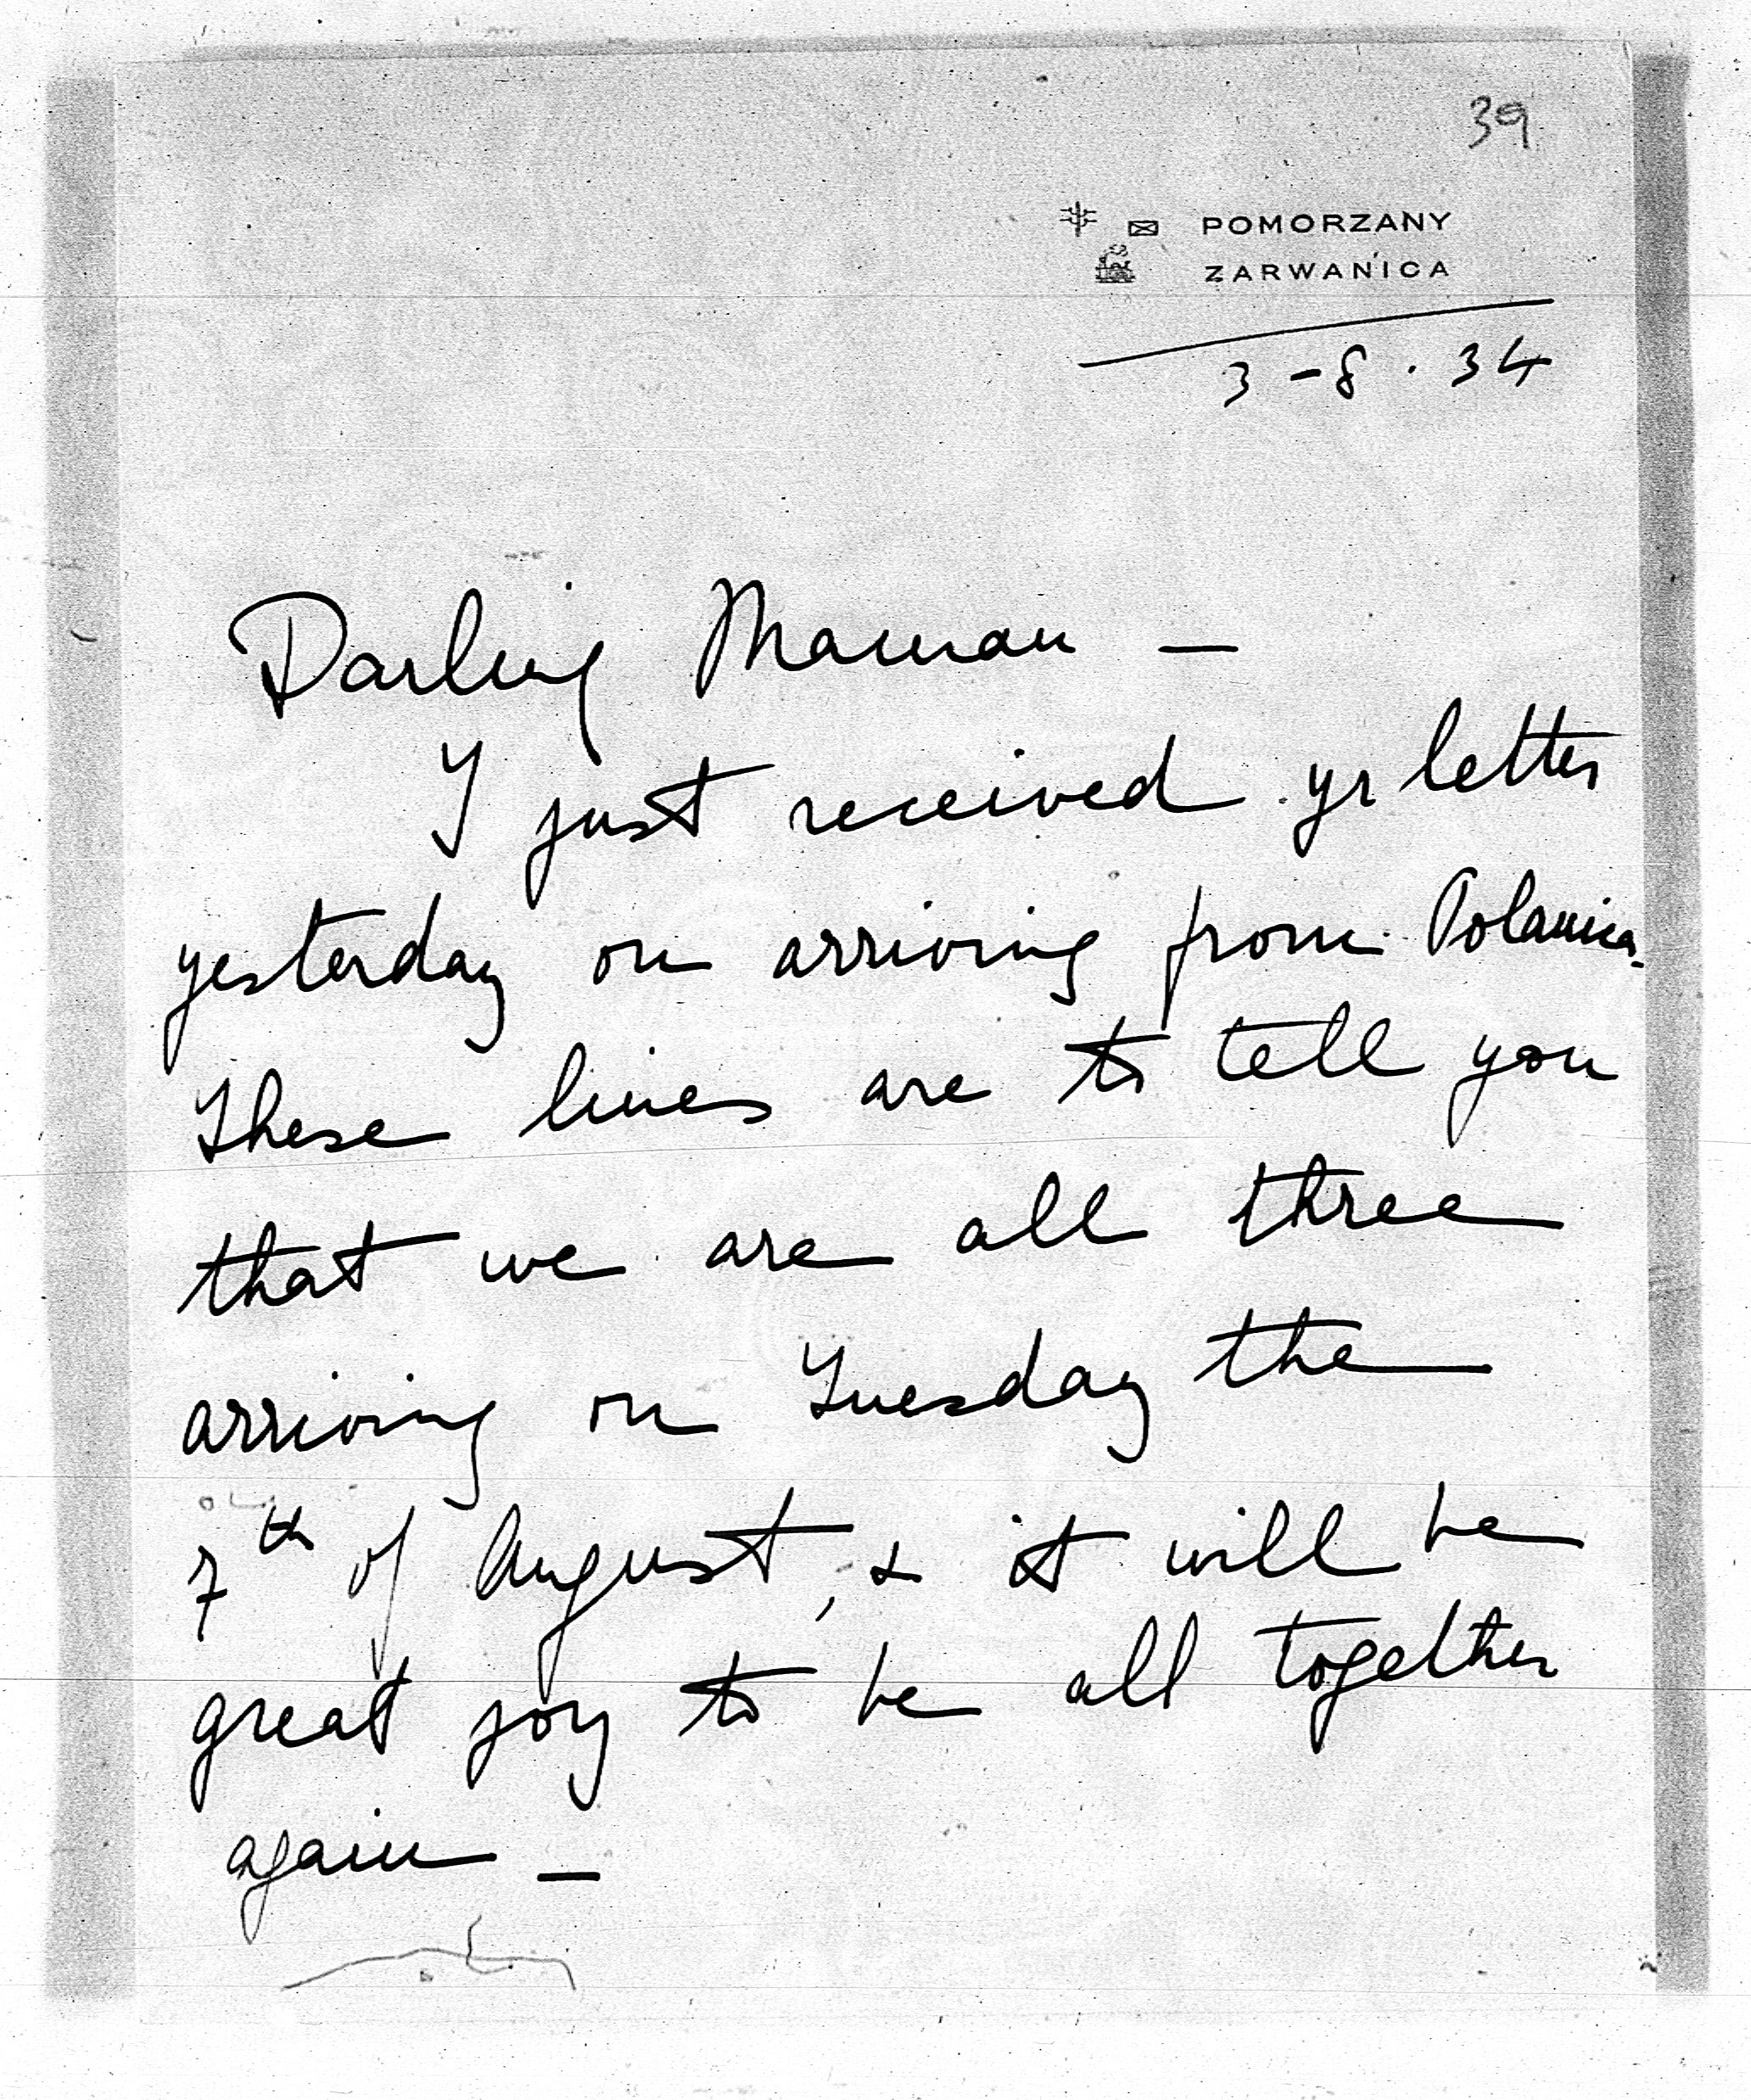 39
POMORZANY
ZARWANICA
3-8.34
Darling Maman —
I just received yr letter
yesterday on arriving from Polanica.
These lines are to tell you
that we are all three
arriving on Tuesday the
7th of August, & it will be
great joy to be all together
again —